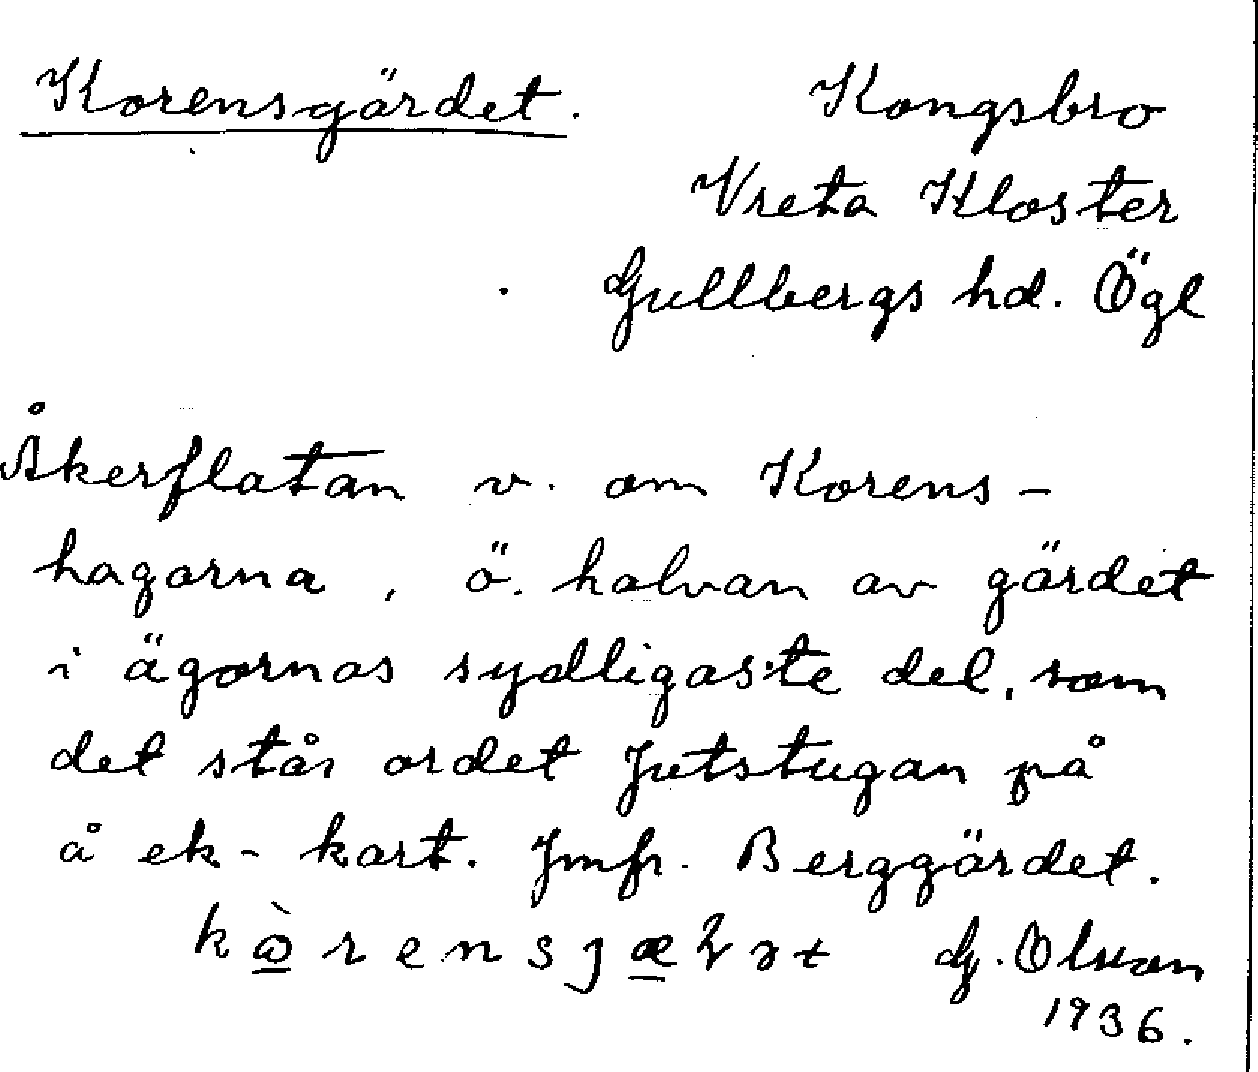 Korensgärdet.
Kongsbro
Vreta Kloster
Gullbergs hd. Ögl
Åkerflatan v. om Korens-
hagarna, ö. halvan av gärdet
i ägornas sydligaste del, som
det står ordet Jutstugan på
å ek-kart. Jmfr. Berggärdet.
G. Olson
1936.